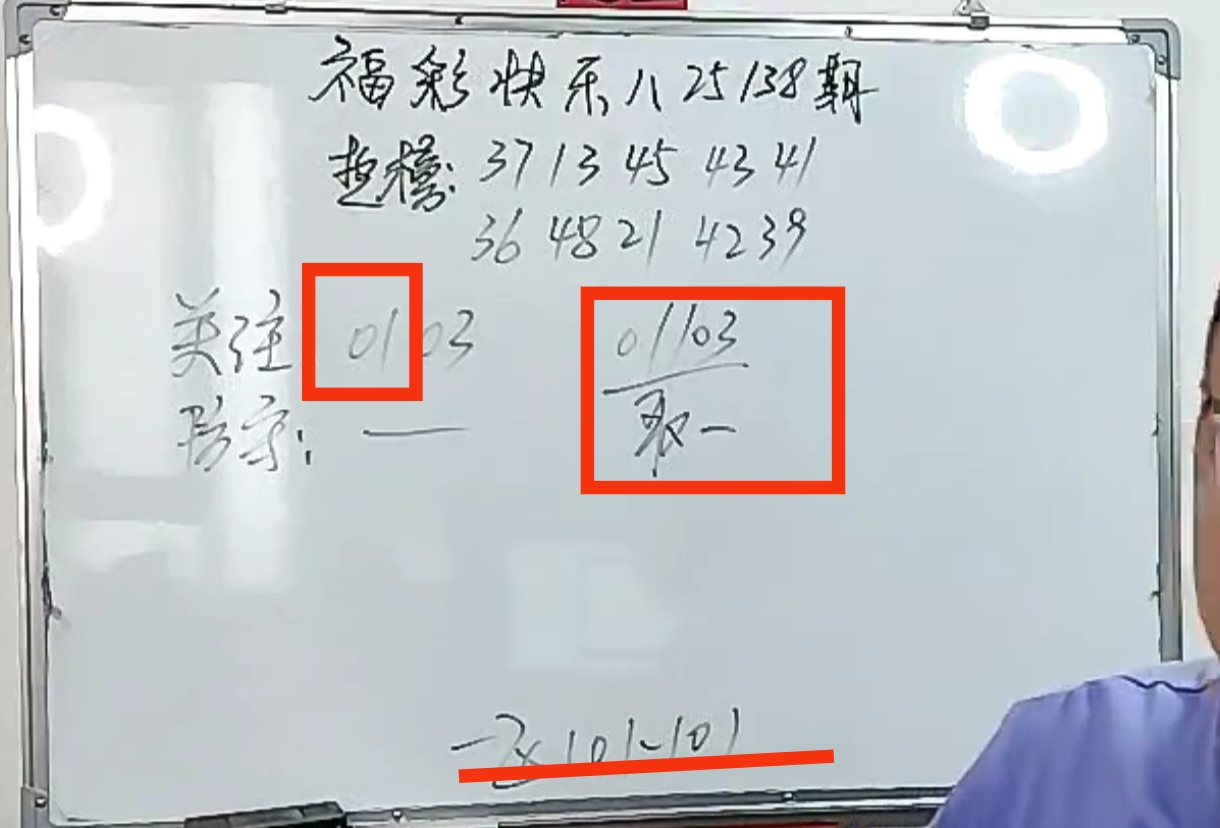 福彩快乐八25138期
37 13 45 43 41
36 48 21 42 39
关注 01 03
01/03
防守：一
取一